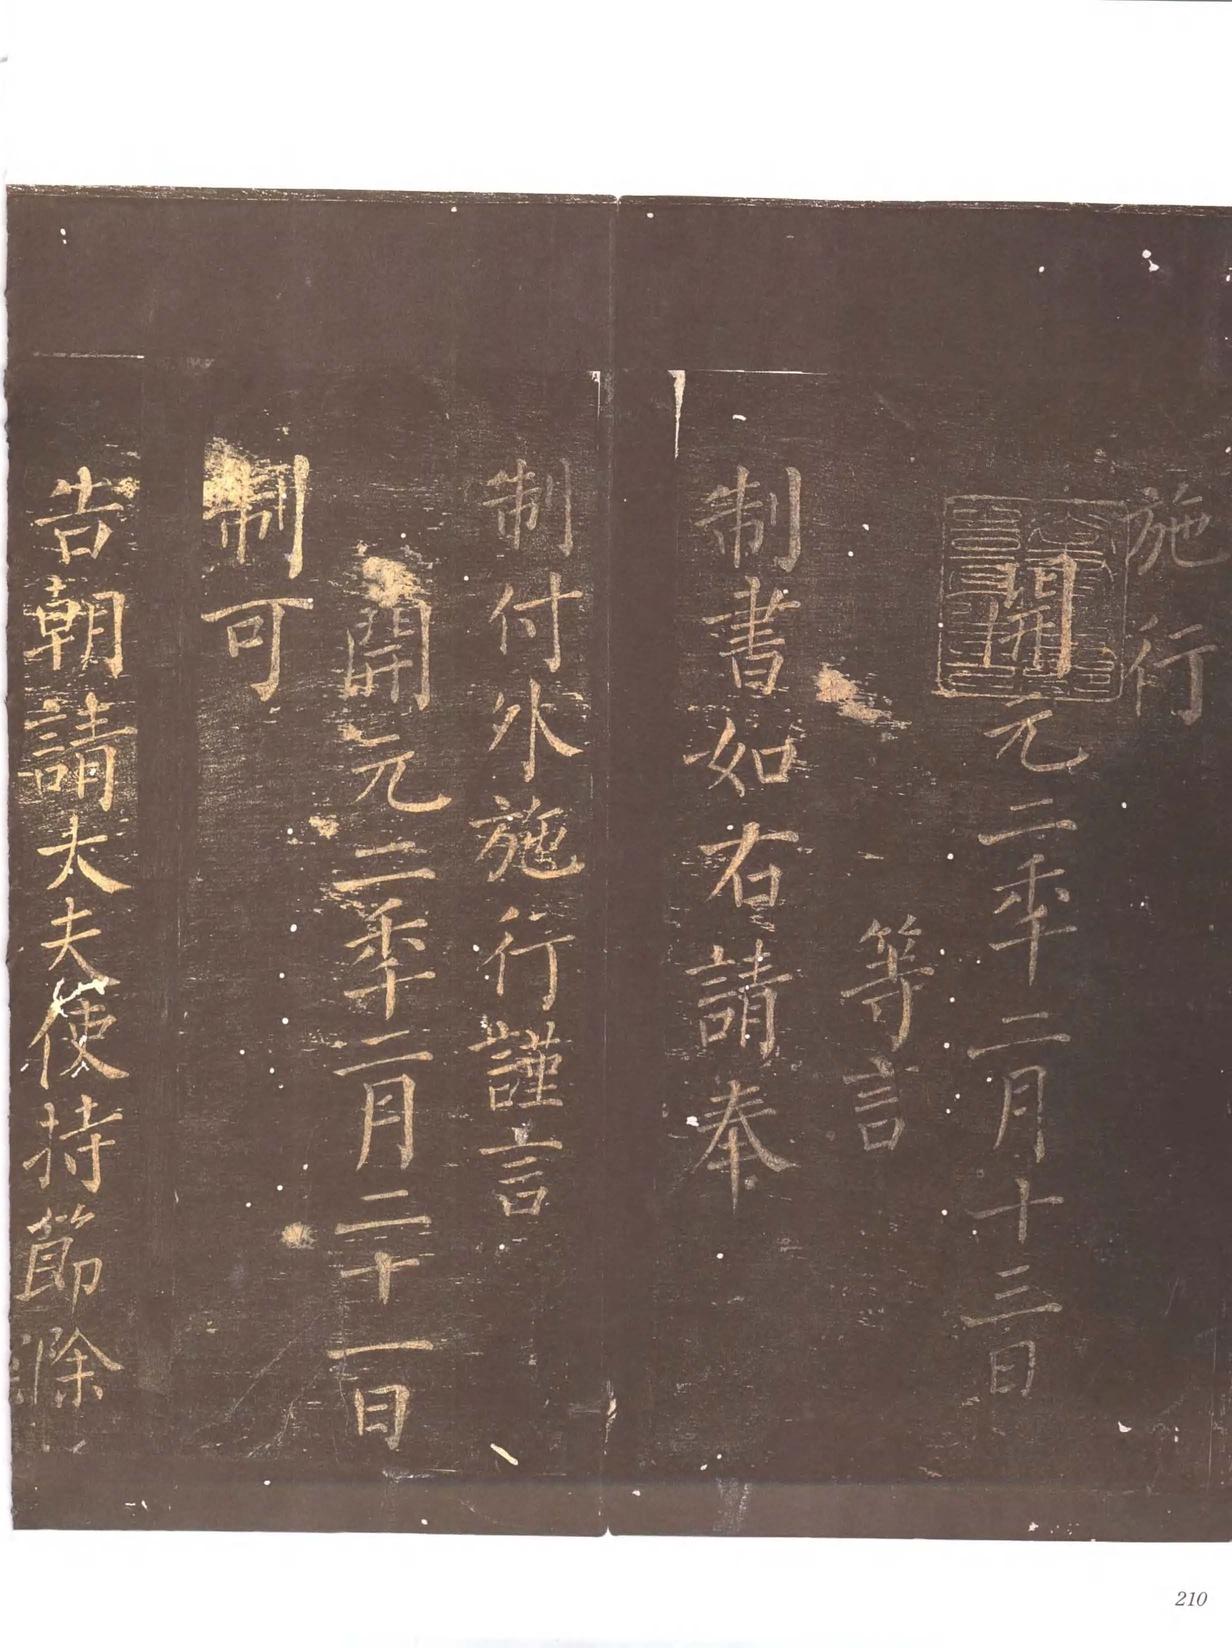 施行
開元二年二月十三日
等言
制書如右請奉
制付外施行謹言
開元二年二月二十一日
制可
告朝請大夫使持節滁
210